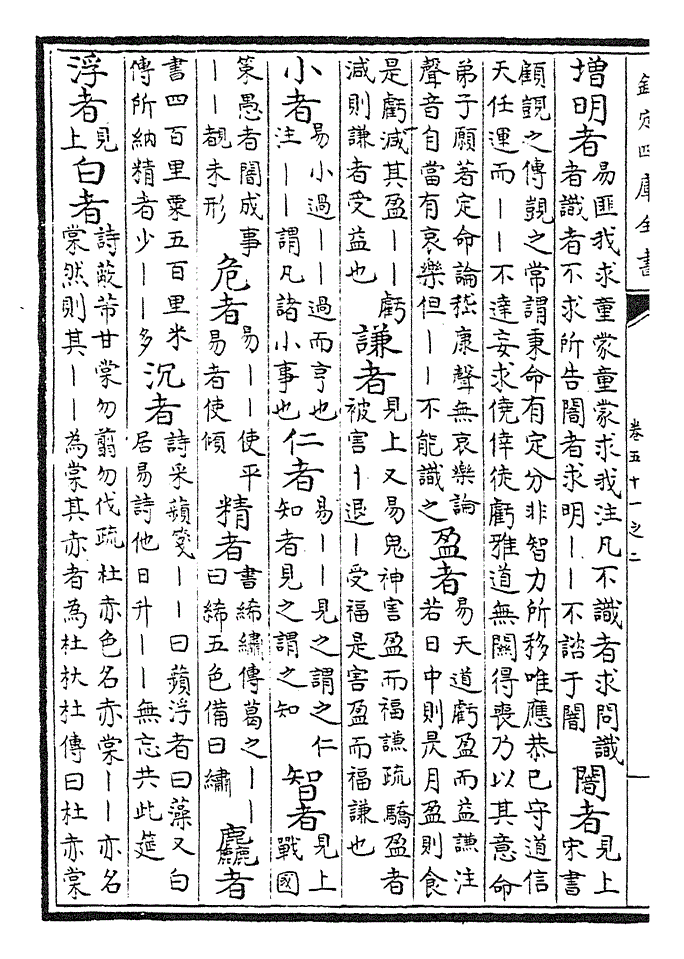 欽定四庫全書
卷五十一之二
増明者
易匪我求童蒙童蒙求我注凡不識者求問識
者識者不求所告闇者求明丨丨不諮于闇
闇者
見上
宋書
顧覬之傳覬之常謂秉命有定分非智力所移唯應恭已守道信
天任運而丨丨不達妄求僥倖徒虧雅道無關得喪乃以其意命
弟子願著定命論嵇康聲無哀樂論
聲音自當有哀樂但丨丨不能識之
盈者
易天道虧盈而益謙注
若日中則昃月盈則食
是虧減其盈丨丨虧
減則謙者受益也
謙者
見上又易鬼神害盈而福謙疏驕盈者
被害丨退丨受福是害盈而福謙也
小者
易小過丨丨過而亨也
注丨丨謂凡諸小事也
仁者
易丨丨見之謂之仁
知者見之謂之知
智者
見上
戰國
策愚者闇成事
丨丨覩未形
危者
易丨丨使平
易者使傾
精者
書絺繡傳葛之丨丨
曰絺五色備曰繡
麤者
書四百里粟五百里米
傳所納精者少丨丨多
沉者
詩采蘋箋丨丨曰蘋浮者曰藻又白
居易詩他日升丨丨無忘共此筵
浮者
見上
白者
詩蔽芾甘棠勿翦勿伐疏杜赤色名赤棠丨丨亦名
棠然則其丨丨為棠其赤者為杜杕杜傳曰杜赤棠